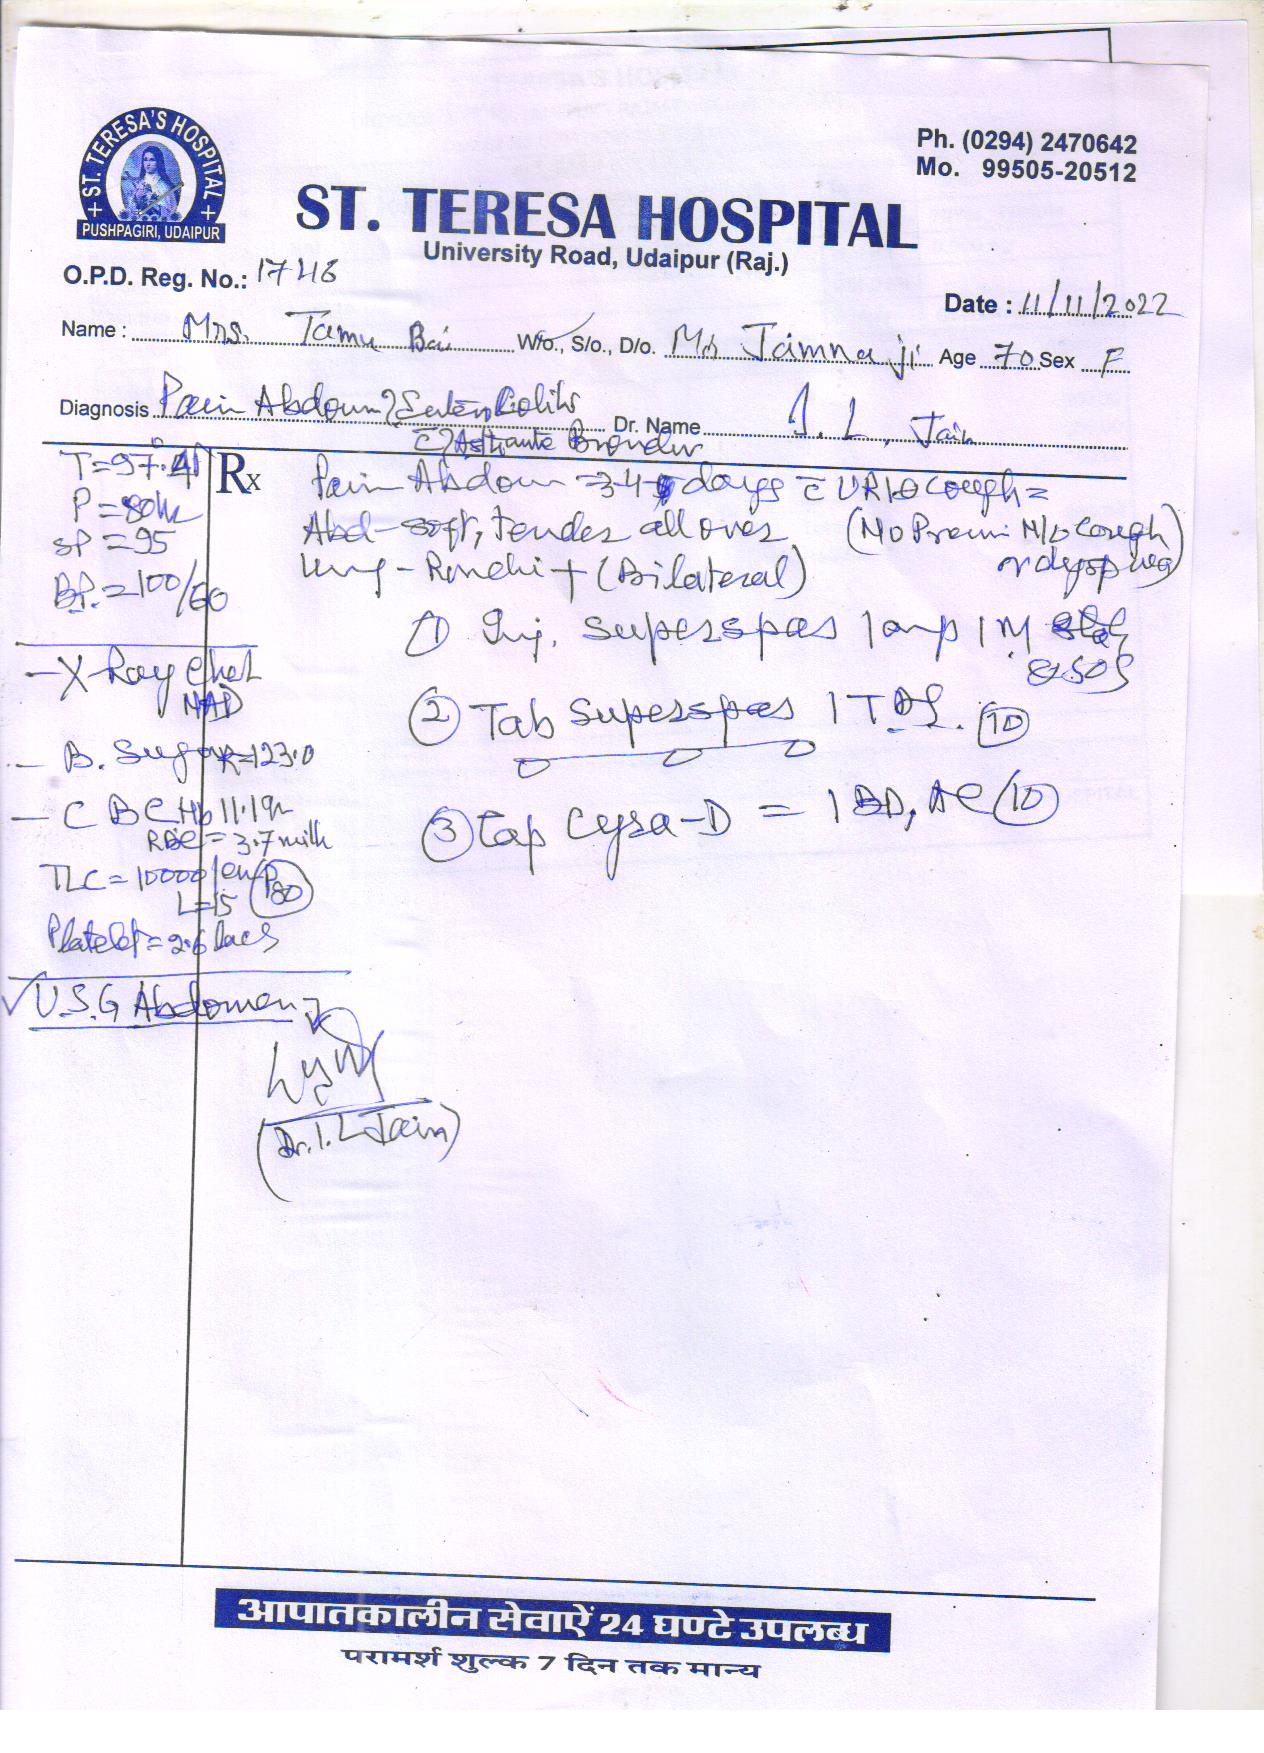 ST. TERESA'S HOSPITAL
PUSHPAGIRI, UDAIPUR
Ph. (0294) 2470642
Mo. 99505-20512
ST. TERESA HOSPITAL
University Road, Udaipur (Raj.)
O.P.D. Reg. No.: 1746
Date : 11/11/2022
Name : Mrs. Tamu Bai W/o., S/o., D/o. Mr Jamna ji Age 70 Sex F
Diagnosis Pain Abdomn ? Dr. Name I. L. Jain
T=97.4
P = 80
SP = 95
BP. = 100/60
Rx
Pain Abdom 3-4 days c̄ URI cough
Abd-soft, tender all over (No Previ H/o Cough
Lung - Ronchi + (Bilateral) or dyspnea)
① Inj. Superspas 1amp IM
② Tab Superspas 1 TDS. 10
③ Cap Cyra-D = 1 BD, AC 10
- X-Ray Chest
NAD
- B. Sugar R=123.0
- CBC Hb 11.1
RBC = 3.7 mill
TLC = 10000/cm P80
L=15
Platelet = 2.6 lacs
✓ U.S.G Abdomen
(Dr. I. L Jain)
आपातकालीन सेवाऐं 24 घण्टे उपलब्ध
परामर्श शुल्क 7 दिन तक मान्य